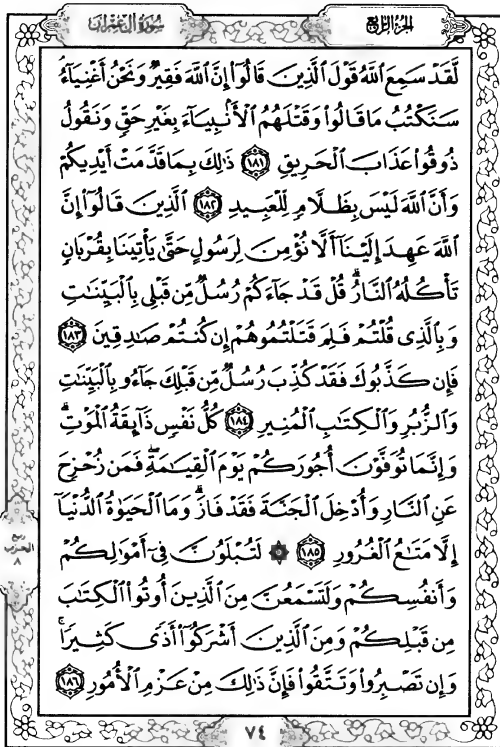 سُورَةُ آلِ عِمْرَان
الجُزءُ الرَّابِعُ
لَّقَدْ سَمِعَ ٱللَّهُ قَوْلَ ٱلَّذِينَ قَالُوٓا۟ إِنَّ ٱللَّهَ فَقِيرٌ وَنَحْنُ أَغْنِيَآءُ
سَنَكْتُبُ مَا قَالُوا۟ وَقَتْلَهُمُ ٱلْأَنۢبِيَآءَ بِغَيْرِ حَقٍّ وَنَقُولُ
ذُوقُوا۟ عَذَابَ ٱلْحَرِيقِ ١٨١ ذَٰلِكَ بِمَا قَدَّمَتْ أَيْدِيكُمْ
وَأَنَّ ٱللَّهَ لَيْسَ بِظَلَّامٍ لِّلْعَبِيدِ ١٨٢ ٱلَّذِينَ قَالُوٓا۟ إِنَّ
ٱللَّهَ عَهِدَ إِلَيْنَآ أَلَّا نُؤْمِنَ لِرَسُولٍ حَتَّىٰ يَأْتِيَنَا بِقُرْبَانٍ
تَأْكُلُهُ ٱلنَّارُ ۗ قُلْ قَدْ جَآءَكُمْ رُسُلٌ مِّن قَبْلِى بِٱلْبَيِّنَٰتِ
وَبِٱلَّذِى قُلْتُمْ فَلِمَ قَتَلْتُمُوهُمْ إِن كُنتُمْ صَٰدِقِينَ ١٨٣
فَإِن كَذَّبُوكَ فَقَدْ كُذِّبَ رُسُلٌ مِّن قَبْلِكَ جَآءُو بِٱلْبَيِّنَٰتِ
وَٱلزُّبُرِ وَٱلْكِتَٰبِ ٱلْمُنِيرِ ١٨٤ كُلُّ نَفْسٍ ذَآئِقَةُ ٱلْمَوْتِ ۗ
وَإِنَّمَا تُوَفَّوْنَ أُجُورَكُمْ يَوْمَ ٱلْقِيَٰمَةِ ۖ فَمَن زُحْزِحَ
عَنِ ٱلنَّارِ وَأُدْخِلَ ٱلْجَنَّةَ فَقَدْ فَازَ ۗ وَمَا ٱلْحَيَوٰةُ ٱلدُّنْيَآ
إِلَّا مَتَٰعُ ٱلْغُرُورِ ١٨٥ ۞ لَتُبْلَوُنَّ فِىٓ أَمْوَٰلِكُمْ
وَأَنفُسِكُمْ وَلَتَسْمَعُنَّ مِنَ ٱلَّذِينَ أُوتُوا۟ ٱلْكِتَٰبَ
مِن قَبْلِكُمْ وَمِنَ ٱلَّذِينَ أَشْرَكُوٓا۟ أَذًى كَثِيرًا ۚ
وَإِن تَصْبِرُوا۟ وَتَتَّقُوا۟ فَإِنَّ ذَٰلِكَ مِنْ عَزْمِ ٱلْأُمُورِ ١٨٦
ربع
الحزب
٨
٧٤